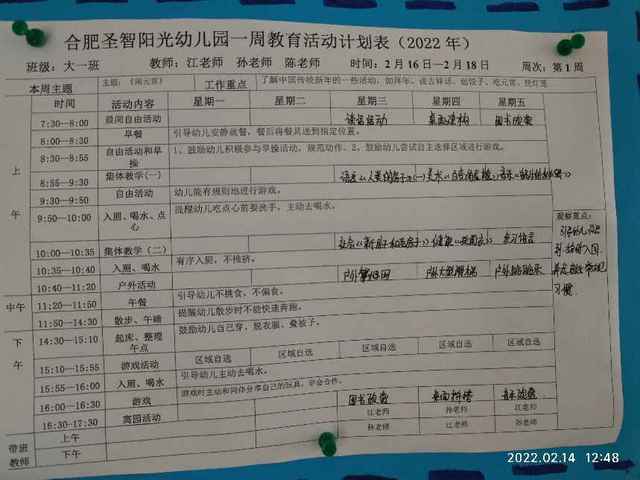 合肥圣智阳光幼儿园一周教育活动计划表（2022 年）
班级：大一班 教师：江老师 孙老师 陈老师 时间：2 月 16 日—2 月 18 日 周次：第 1 周
本周主题 主题：《闹元宵》 工作重点 了解中国传统新年的一些活动，如拜年、说吉祥话、包饺子、吃元宵、挂灯笼
时间 活动内容 星期一 星期二 星期三 星期四 星期五
上午
7:30—8:00 晨间自由活动 桌面建构 图书阅览
8:00—8:30 早餐 引导幼儿安静就餐，餐后将餐具送到指定位置。
8:30—8:55 自由活动和早操 1、鼓励幼儿积极参与早操活动，规范动作。2、鼓励幼儿尝试自主选择区域进行游戏。
8:55—9:30 集体教学(一)
9:30—9:50 自由活动 幼儿能有规则地进行游戏。
9:50—10:00 入厕、喝水、点心 流程幼儿吃点心前要洗手，主动去喝水。
观察重点：
10:00—10:35 集体教学（二）
10:35—10:40 入厕、喝水 有序入厕，不推挤。
10:40—11:20 户外活动
中午
11:20—11:50 午餐 引导幼儿不挑食，不偏食。
11:50—14:30 散步、午睡 提醒幼儿散步时不能快速奔跑。
下午
14:30—15:10 起床、整理午点 鼓励幼儿自己穿、脱衣服、叠被子。
15:10—15:55 游戏活动 区域自选 区域自选 区域自选 区域自选 区域自选
15:55—16:00 入厕、喝水 引导幼儿主动去喝水。
16:00—16:30 游戏 游戏时主动和同伴分享自己的玩具，学会合作。
16:30-17:30 离园活动 图书阅览 桌面拼搭
带班教师
上午 江老师 孙老师 江老师
下午 孙老师 江老师 孙老师
2022.02.14 12:48